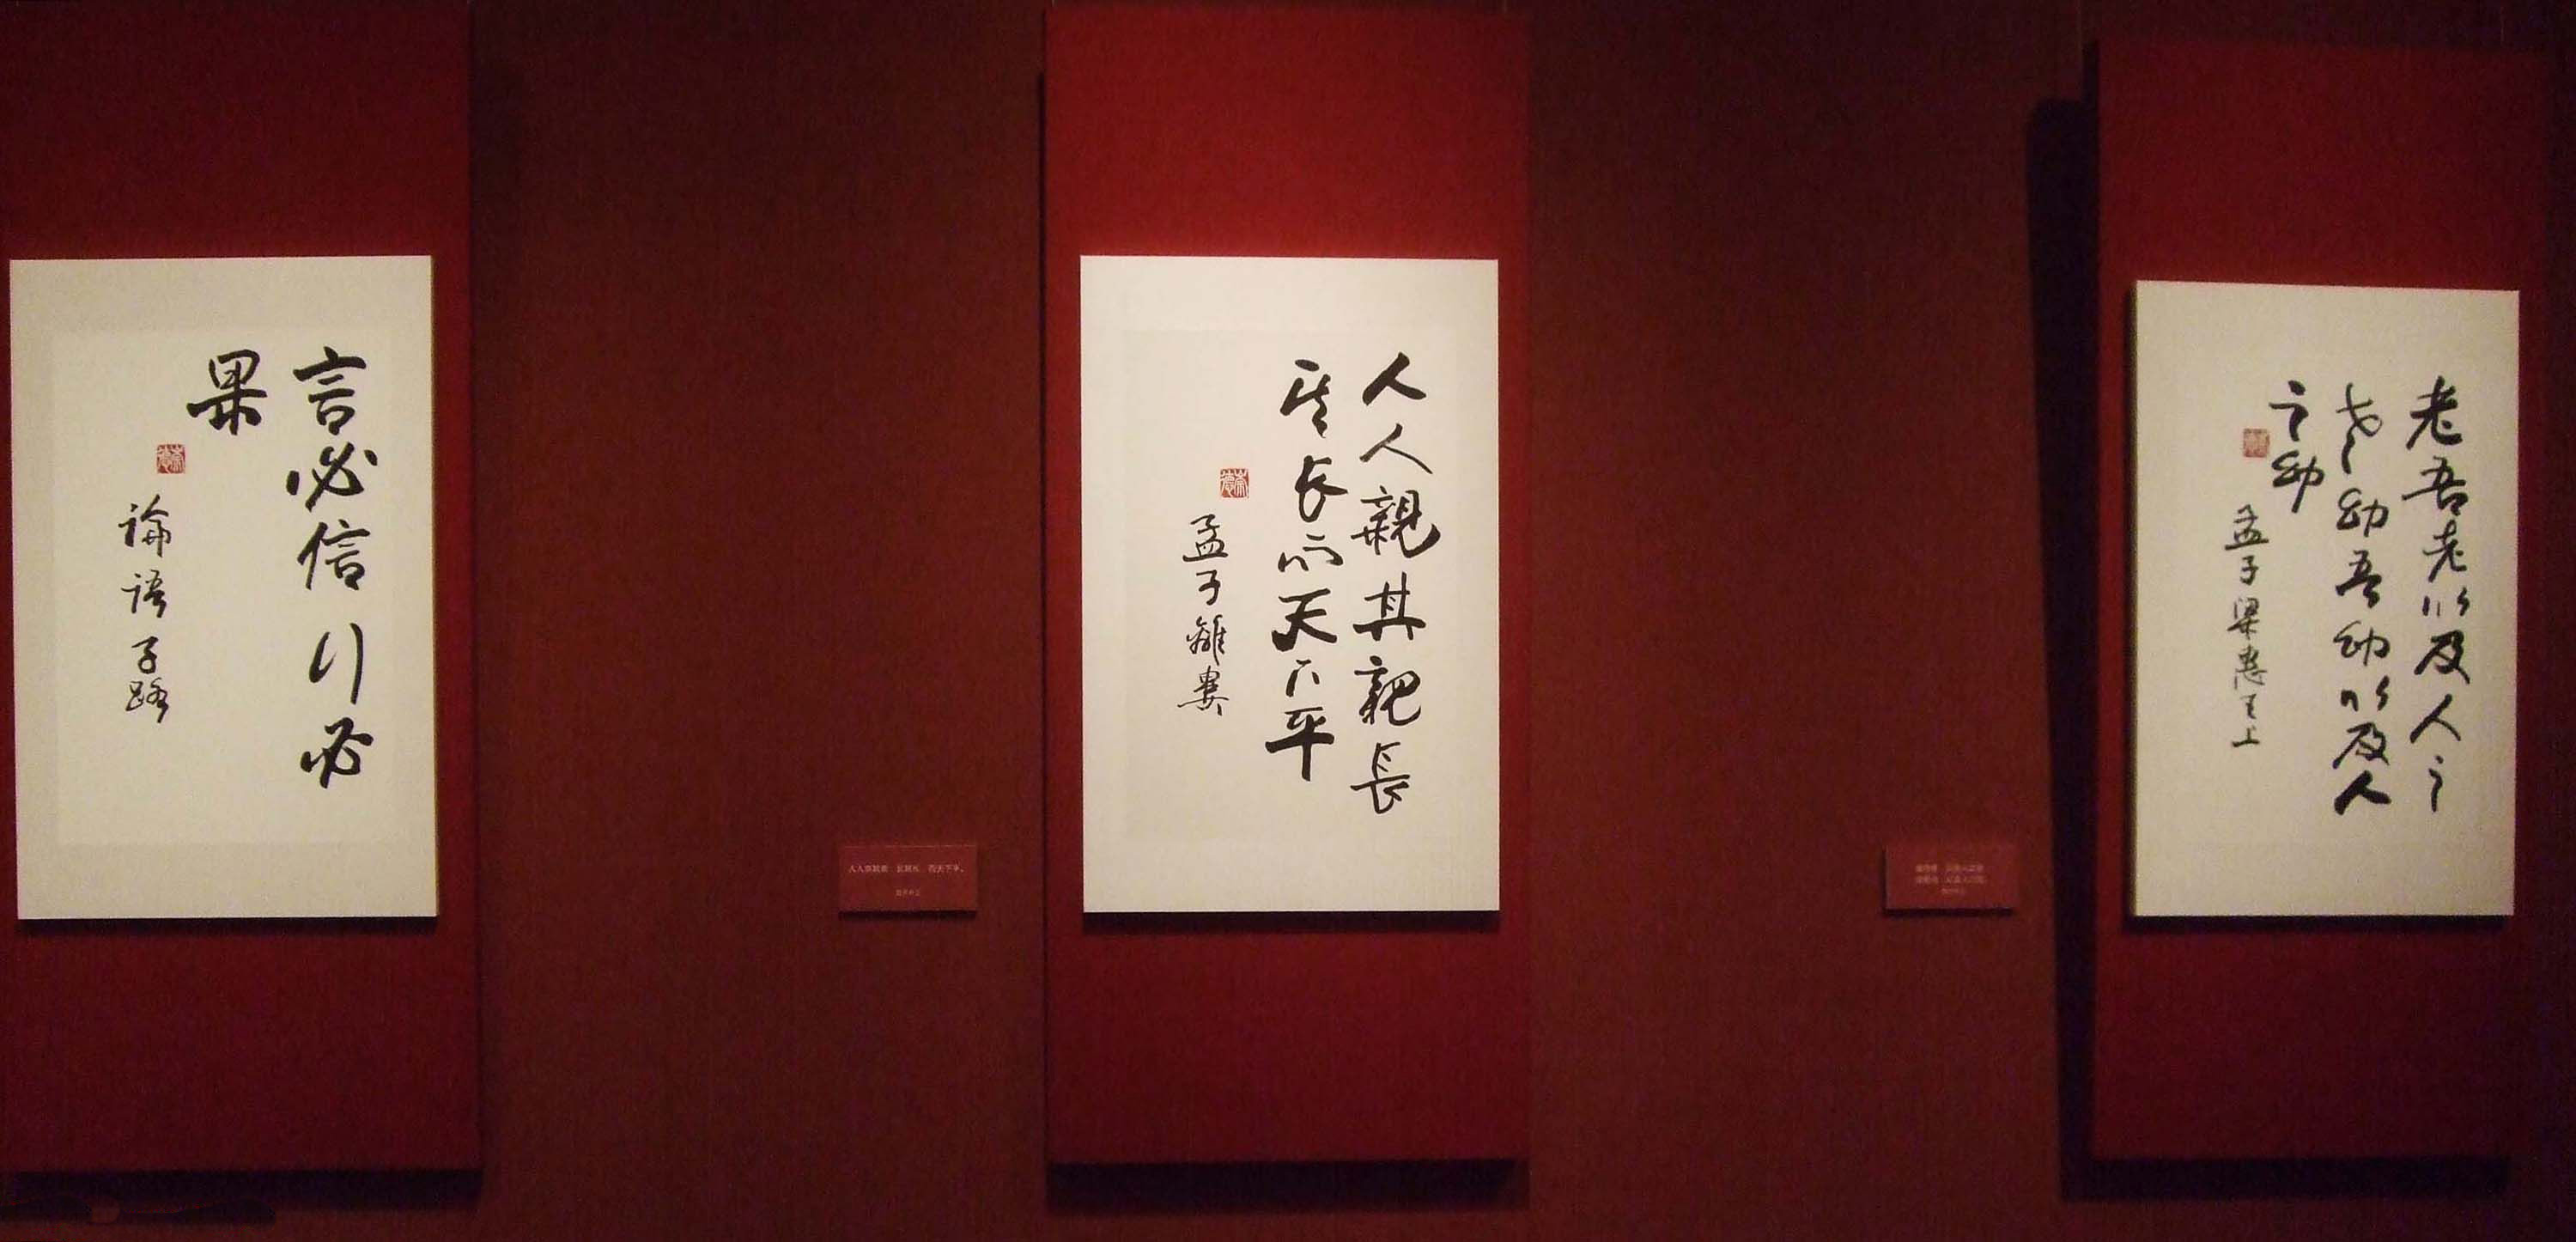 言必信行必
果
論語子路
人人親其親長
其長而天下平
孟子離婁
老吾老以及人之
老幼吾幼以及人
之幼
孟子梁惠王上